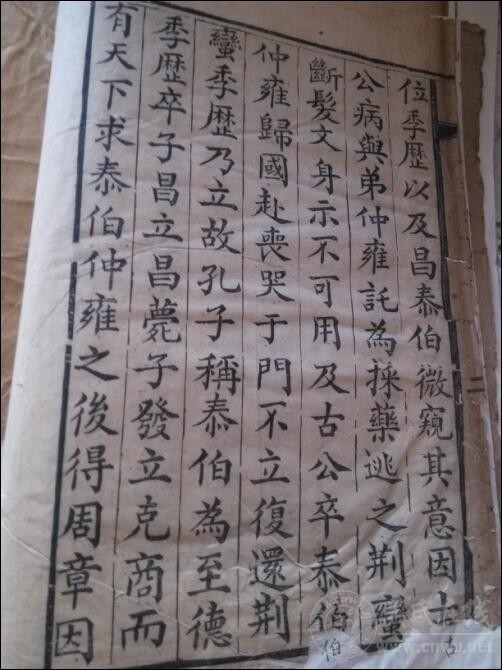 二
位季歴以及昌泰伯微窺其意因古
古
公病與弟仲雍託為採藥逃之荆蠻
斷髮文身示不可用及古公卒泰伯
伯
仲雍歸國赴喪哭于門不立復還荆
蠻季歴乃立故孔子稱泰伯為至德
季歴卒子昌立昌薨子發立克商而
有天下求泰伯仲雍之後得周章因
www.cnwu.net